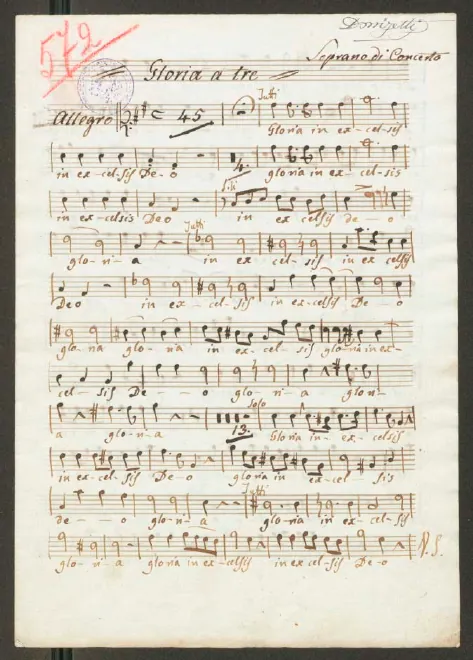 Donizetti
572
Soprano di Concerto
Gloria a tre
Allegro C 45 Tutti
Gloria in ex-cel-sis
in ex-cel-sis De-o 4. gloria in ex-cel-sis
Soli
in ex-celsis Deo in ex celsis de-o
Tutti
glo-ri-a in ex cel-sis in ex celsis
Deo in ex-cel-sis in ex-celsis De-o
glo-ria glo-ria in ex-cel-sis gloria in ex-
cel-sis De-o glo-ri-a glori-
Solo
a glo-ri-a 13. Gloria in-ex-celsis
in ex-cel-sis De-o gloria in ex-cel-sis
Tutti
de-o glo-ri-a glo-ria in ex-cel-sis
glo-ri-a gloria in ex-celsis in ex cel-sis De-o V.S.